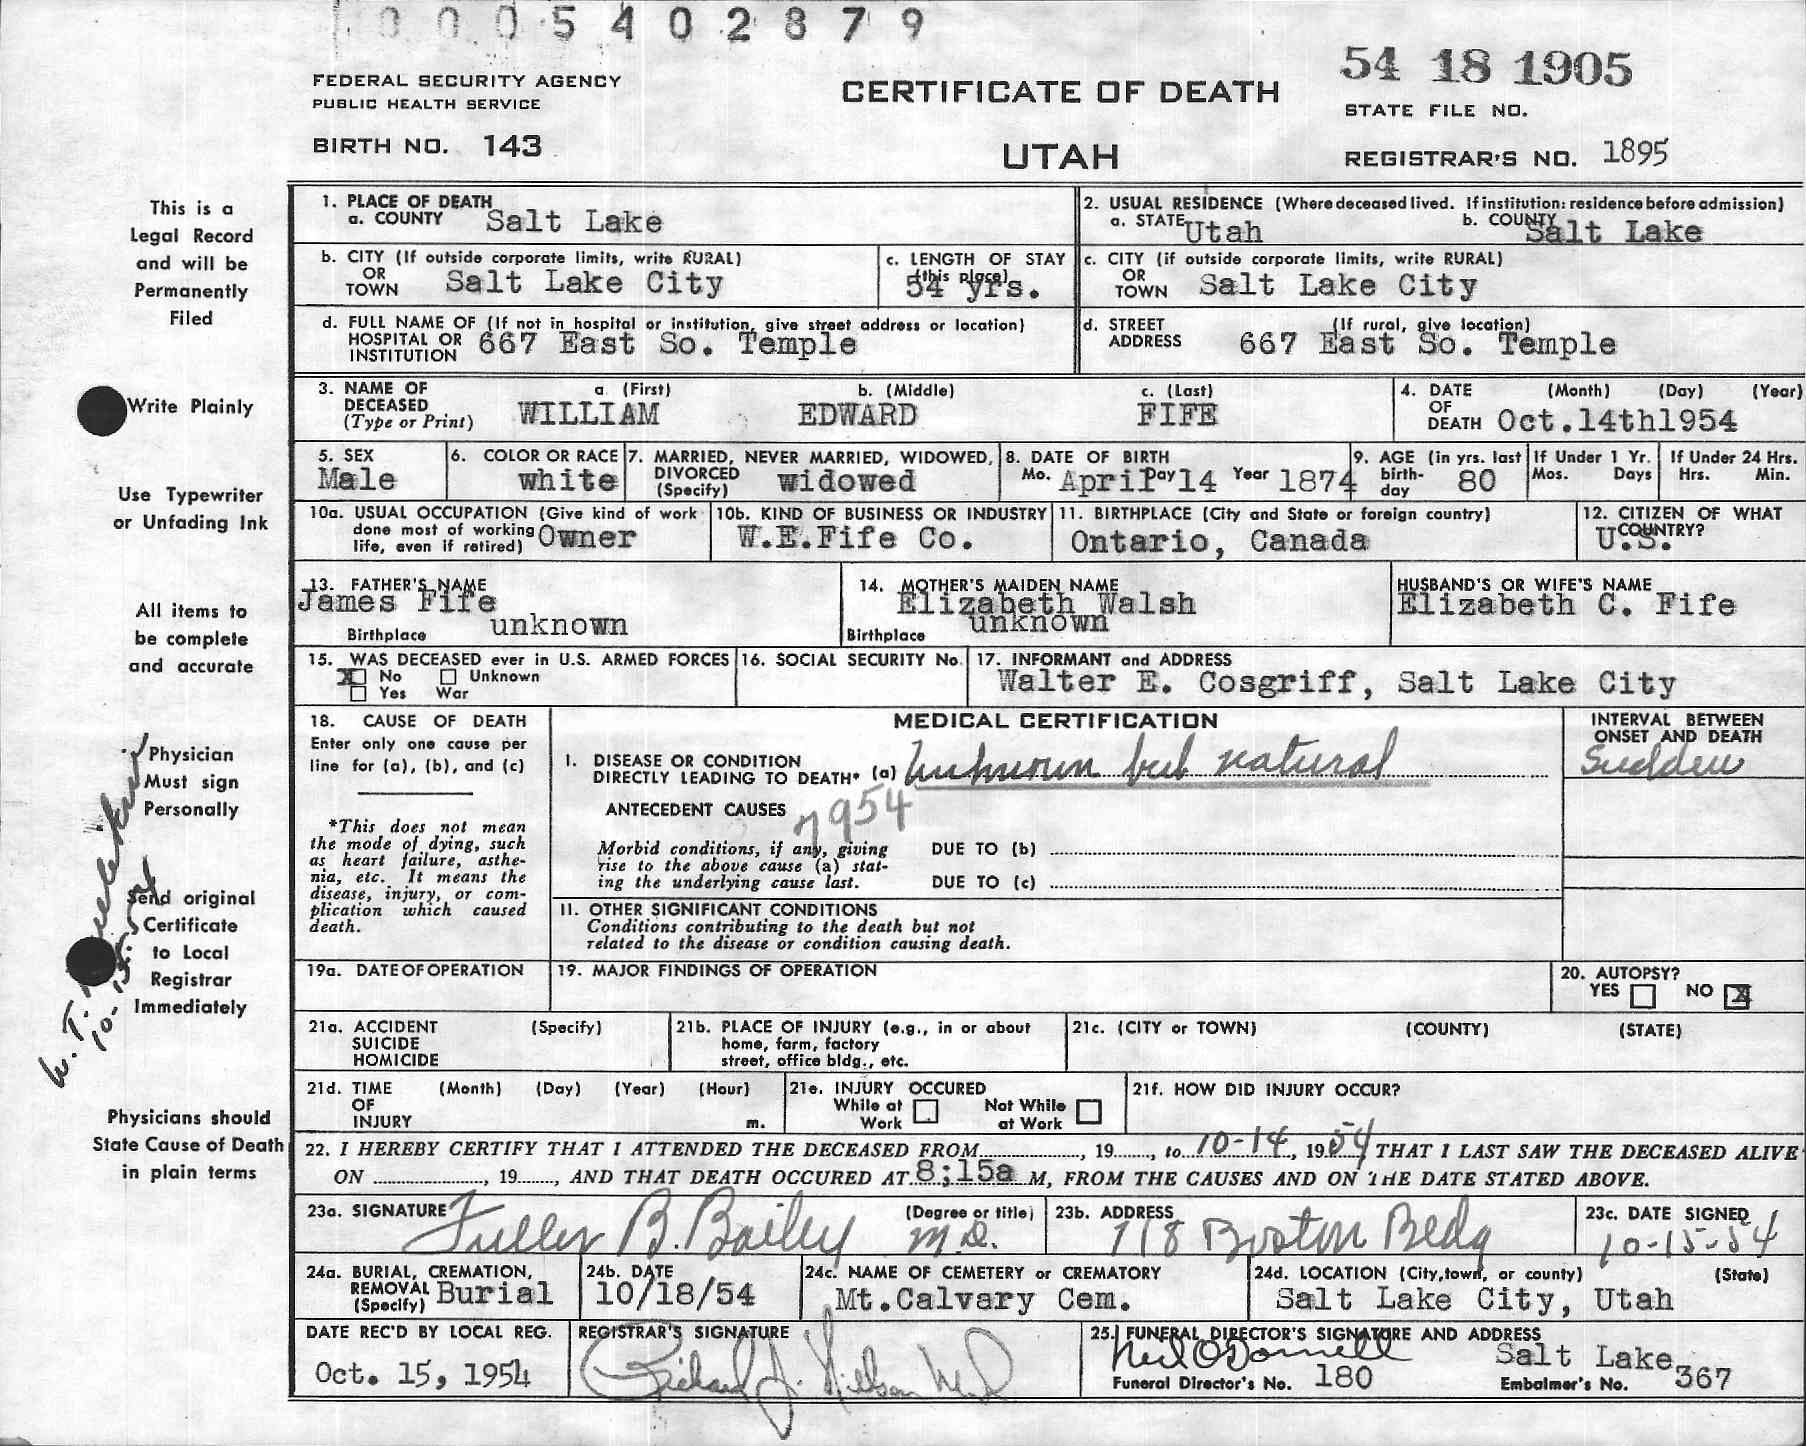 0005402879
FEDERAL SECURITY AGENCY
PUBLIC HEALTH SERVICE
BIRTH NO. 143
CERTIFICATE OF DEATH
UTAH
54 18 1905
STATE FILE NO.
REGISTRAR'S NO. 1895
This is a
Legal Record
and will be
Permanently
Filed
Write Plainly
Use Typewriter
or Unfading Ink
All items to
be complete
and accurate
Physician
Must sign
Personally
Send original
Certificate
to Local
Registrar
Immediately
Physicians should
State Cause of Death
in plain terms
W. T.
10-15-54
1. PLACE OF DEATH
a. COUNTY Salt Lake
2. USUAL RESIDENCE (Where deceased lived. If institution: residence before admission)
a. STATE Utah b. COUNTY Salt Lake
b. CITY (If outside corporate limits, write RURAL)
OR
TOWN Salt Lake City
c. LENGTH OF STAY
(this place)
54 yrs.
c. CITY (if outside corporate limits, write RURAL)
OR
TOWN Salt Lake City
d. FULL NAME OF (If not in hospital or institution, give street address or location)
HOSPITAL OR
INSTITUTION 667 East So. Temple
d. STREET (If rural, give location)
ADDRESS 667 East So. Temple
3. NAME OF DECEASED (Type or Print)
a (First) b. (Middle) c. (Last)
WILLIAM EDWARD FIFE
4. DATE OF DEATH (Month) (Day) (Year)
Oct.14th1954
5. SEX
Male
6. COLOR OR RACE
white
7. MARRIED, NEVER MARRIED, WIDOWED,
DIVORCED (Specify) widowed
8. DATE OF BIRTH
Mo. April Day 14 Year 1874
9. AGE (in yrs. last birth-day 80
If Under 1 Yr.
Mos. Days
If Under 24 Hrs.
Hrs. Min.
10a. USUAL OCCUPATION (Give kind of work
done most of working
life, even if retired) Owner
10b. KIND OF BUSINESS OR INDUSTRY
W.E.Fife Co.
11. BIRTHPLACE (City and State or foreign country)
Ontario, Canada
12. CITIZEN OF WHAT
COUNTRY?
U.S.
13. FATHER'S NAME
James Fife
Birthplace unknown
14. MOTHER'S MAIDEN NAME
Elizabeth Walsh
Birthplace unknown
HUSBAND'S OR WIFE'S NAME
Elizabeth C. Fife
15. WAS DECEASED ever in U.S. ARMED FORCES
X No Unknown
Yes War
16. SOCIAL SECURITY No.
17. INFORMANT and ADDRESS
Walter E. Cosgriff, Salt Lake City
18. CAUSE OF DEATH
Enter only one cause per
line for (a), (b), and (c)
*This does not mean
the mode of dying, such
as heart failure, asthe-
nia, etc. It means the
disease, injury, or com-
plication which caused
death.
MEDICAL CERTIFICATION
I. DISEASE OR CONDITION
DIRECTLY LEADING TO DEATH* (a) Unknown but natural
ANTECEDENT CAUSES
7954
Morbid conditions, if any, giving
rise to the above cause (a) stat-
ing the underlying cause last.
DUE TO (b)
DUE TO (c)
II. OTHER SIGNIFICANT CONDITIONS
Conditions contributing to the death but not
related to the disease or condition causing death.
INTERVAL BETWEEN
ONSET AND DEATH
Sudden
19a. DATE OF OPERATION
19. MAJOR FINDINGS OF OPERATION
20. AUTOPSY?
YES NO X
21a. ACCIDENT (Specify)
SUICIDE
HOMICIDE
21b. PLACE OF INJURY (e.g., in or about
home, farm, factory
street, office bldg., etc.
21c. (CITY or TOWN) (COUNTY) (STATE)
21d. TIME (Month) (Day) (Year) (Hour)
OF
INJURY m.
21e. INJURY OCCURED
While at Work Not While at Work
21f. HOW DID INJURY OCCUR?
22. I HEREBY CERTIFY THAT I ATTENDED THE DECEASED FROM, 19, to 10-14, 1954 THAT I LAST SAW THE DECEASED ALIVE
ON, 19, AND THAT DEATH OCCURED AT 8;15a M, FROM THE CAUSES AND ON THE DATE STATED ABOVE.
23a. SIGNATURE (Degree or title)
Fuller B. Bailey M.D.
23b. ADDRESS
718 Boston Bldg
23c. DATE SIGNED
10-15-54
24a. BURIAL, CREMATION,
REMOVAL
(Specify) Burial
24b. DATE
10/18/54
24c. NAME OF CEMETERY or CREMATORY
Mt.Calvary Cem.
24d. LOCATION (City, town, or county) (State)
Salt Lake City, Utah
DATE REC'D BY LOCAL REG.
Oct. 15, 1954
REGISTRAR'S SIGNATURE
Richard J. Nielson
25. FUNERAL DIRECTOR'S SIGNATURE AND ADDRESS
Neil O'Donnell Salt Lake
Funeral Director's No. 180 Embalmer's No. 367